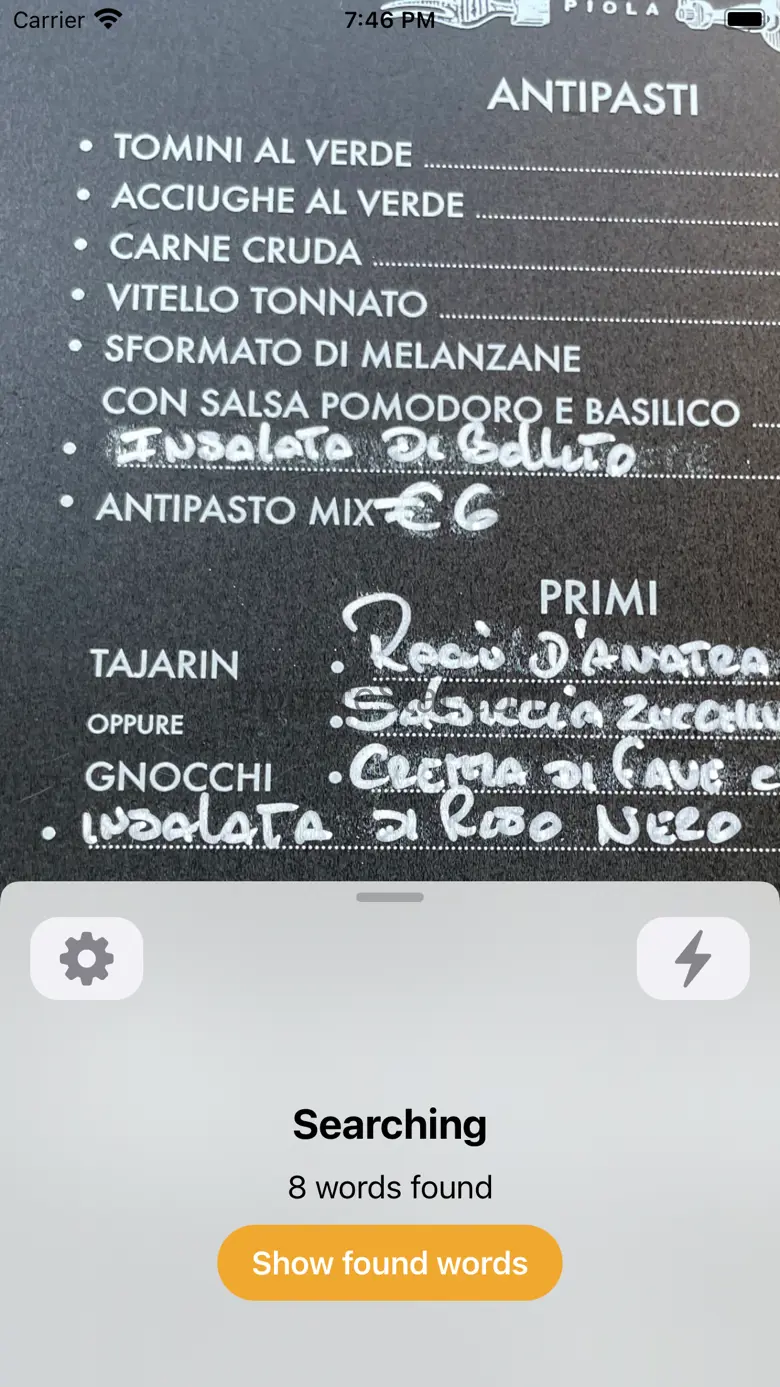 Carrier 7:46 PM
PIOLA
ANTIPASTI
• TOMINI AL VERDE
• ACCIUGHE AL VERDE
• CARNE CRUDA
• VITELLO TONNATO
• SFORMATO DI MELANZANE
CON SALSA POMODORO E BASILICO
• INSALATA DI BOLLITO
• ANTIPASTO MIX € 6
PRIMI
TAJARIN • RAGÙ D'ANATRA
OPPURE • SALSICCIA
GNOCCHI • CREMA DI FAVE
• INSALATA DI RISO NERO
Searching
8 words found
Show found words